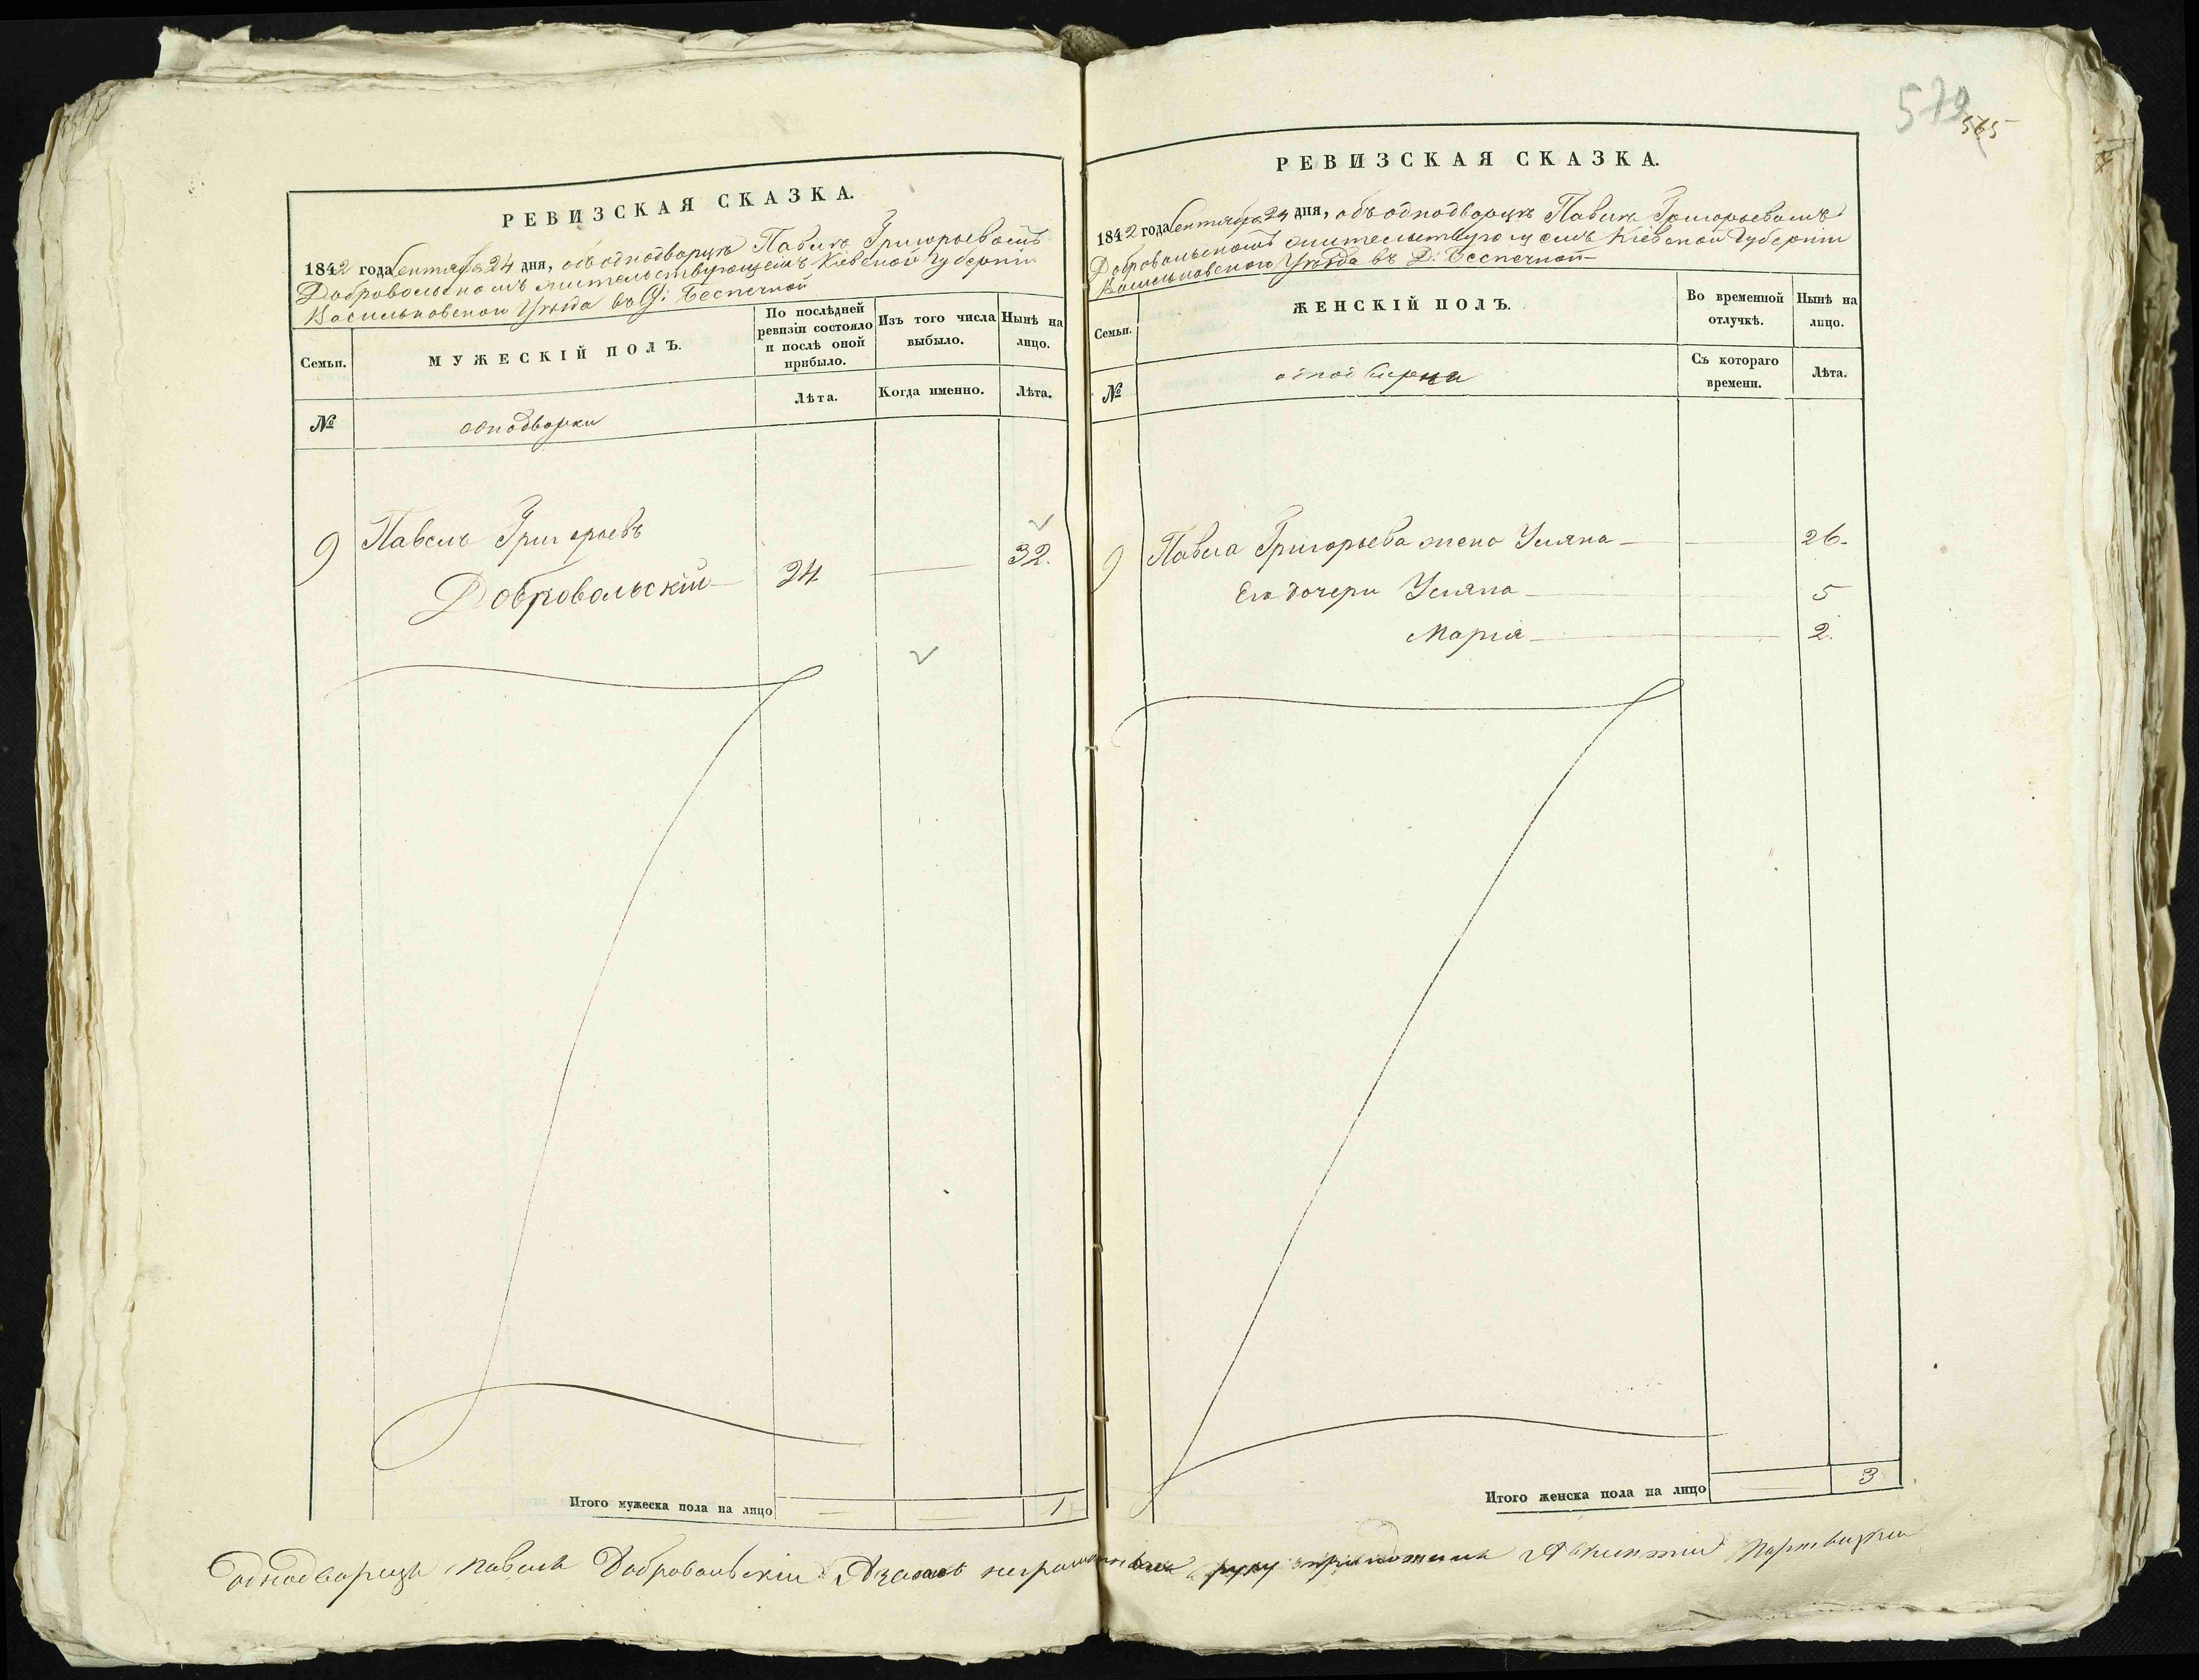 РЕВИЗСКАЯ СКАЗКА.
1842 года Сентября 24 дня, объ однодворцѣ Павлѣ Григорьевомъ
Добровольскомъ жительствующемъ Кіевской Губерніи
Васильковского Уѣзда въ Д: Беспечной
Семьи.
МУЖЕСКІЙ ПОЛЪ.
По послѣдней ревизіи состояло и послѣ оной прибыло.
Изъ того числа выбыло.
Нынѣ на лицо.
№
однодворки
Лѣта.
Когда именно.
Лѣта.
9 Павелъ Григорьевъ
Добровольскій 24 32.
Итого мужеска пола на лицо 1
579
565
РЕВИЗСКАЯ СКАЗКА.
1842 года Сентября 24 дня, объ однодворцѣ Павлѣ Григорьевомъ
Добровольскомъ жительствующемъ Кіевской Губерніи
Васильковского Уѣзда въ Д: Беспечной
Семьи.
ЖЕНСКІЙ ПОЛЪ.
Во временной отлучкѣ.
Нынѣ на лицо.
№
Съ котораго времени.
Лѣта.
9 Павла Григорьева жена Уляна 26.
Его дочери Уляна 5
Марія 2.
Итого женска пола на лицо 3
однодворецъ Павелъ Добровольскій а руку приложилъ